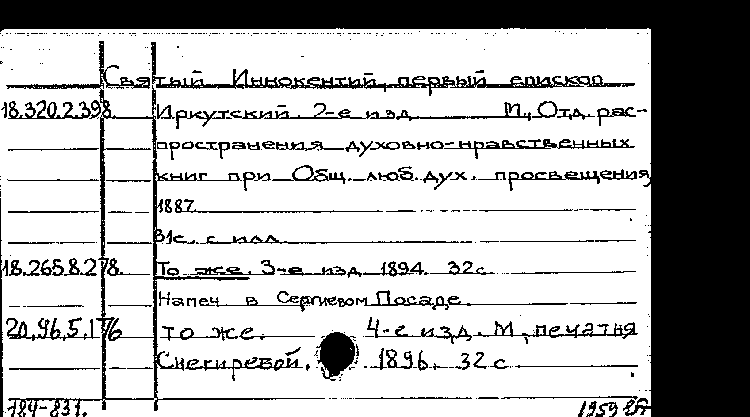 Святый Иннокентий, первый епископ
18.320.2.398. Иркутский. 2-е изд. М., Отд. рас-
пространения духовно-нравственных
книг при Общ. люб. дух. просвещения
1887.
31с. с илл.
18.265.8.278. То же. 3-е изд. 1894. 32с.
Напеч. в Сергиевом Посаде.
20.96.5.176 то же. 4-е изд. М., печатня
Снегиревой. 1896. 32с.
784-831. 1959